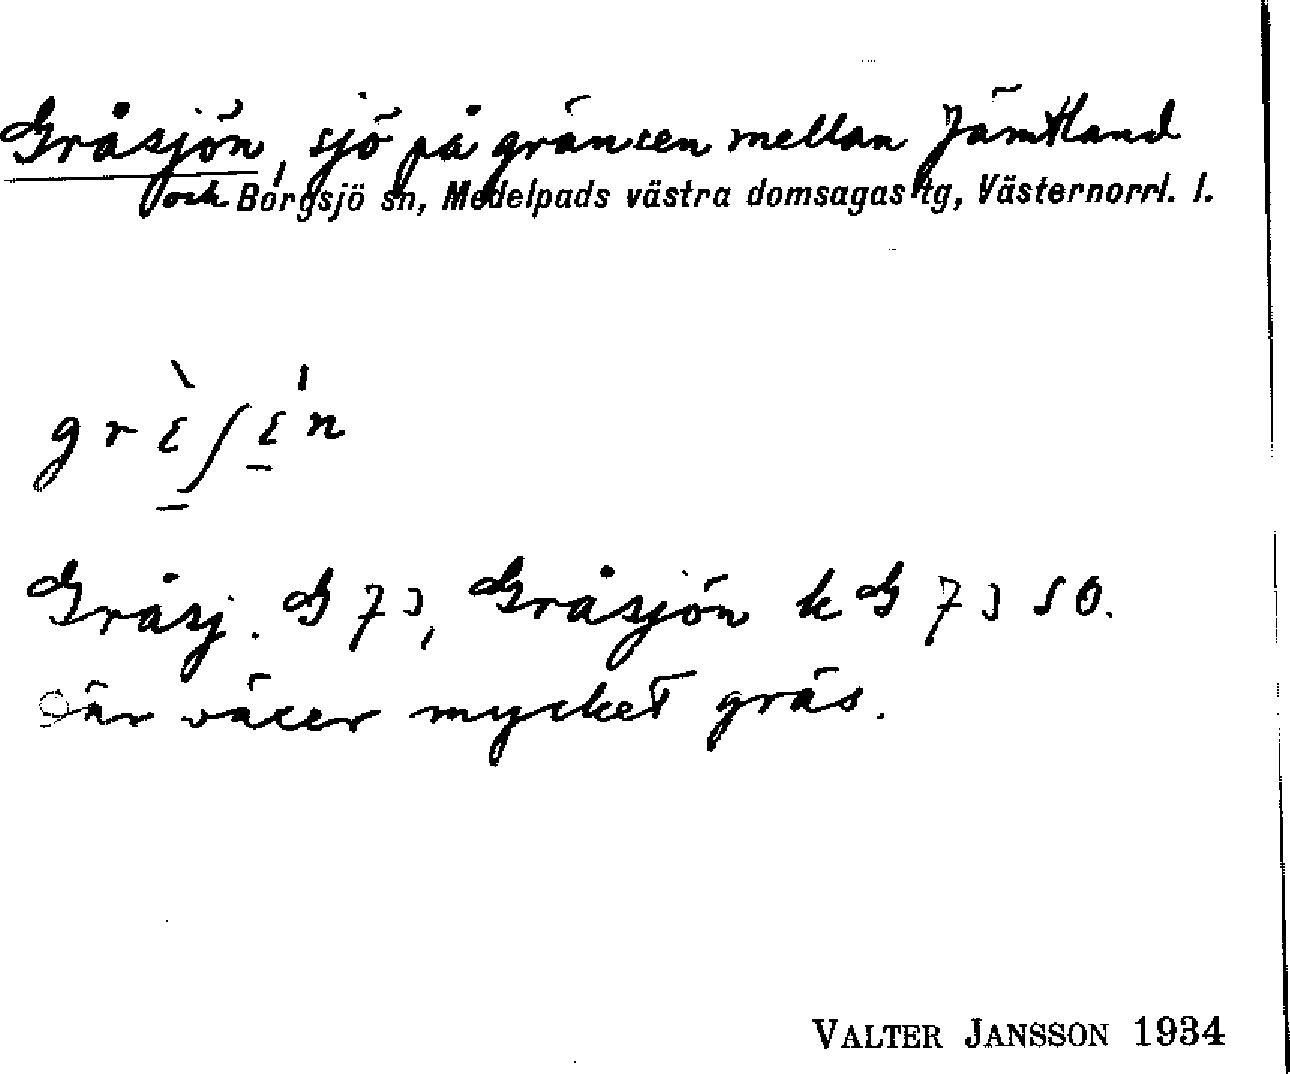 Gråsjön, sjö på gränsen mellan Jämtland
och Borgsjö sn, Medelpads västra domsagas tg, Västernorrl. l.
grɛ̀ʃɛ́n
Gråsj. G 73, Gråsjön k G 73 SO.
Där växer mycket gräs.
VALTER JANSSON 1934